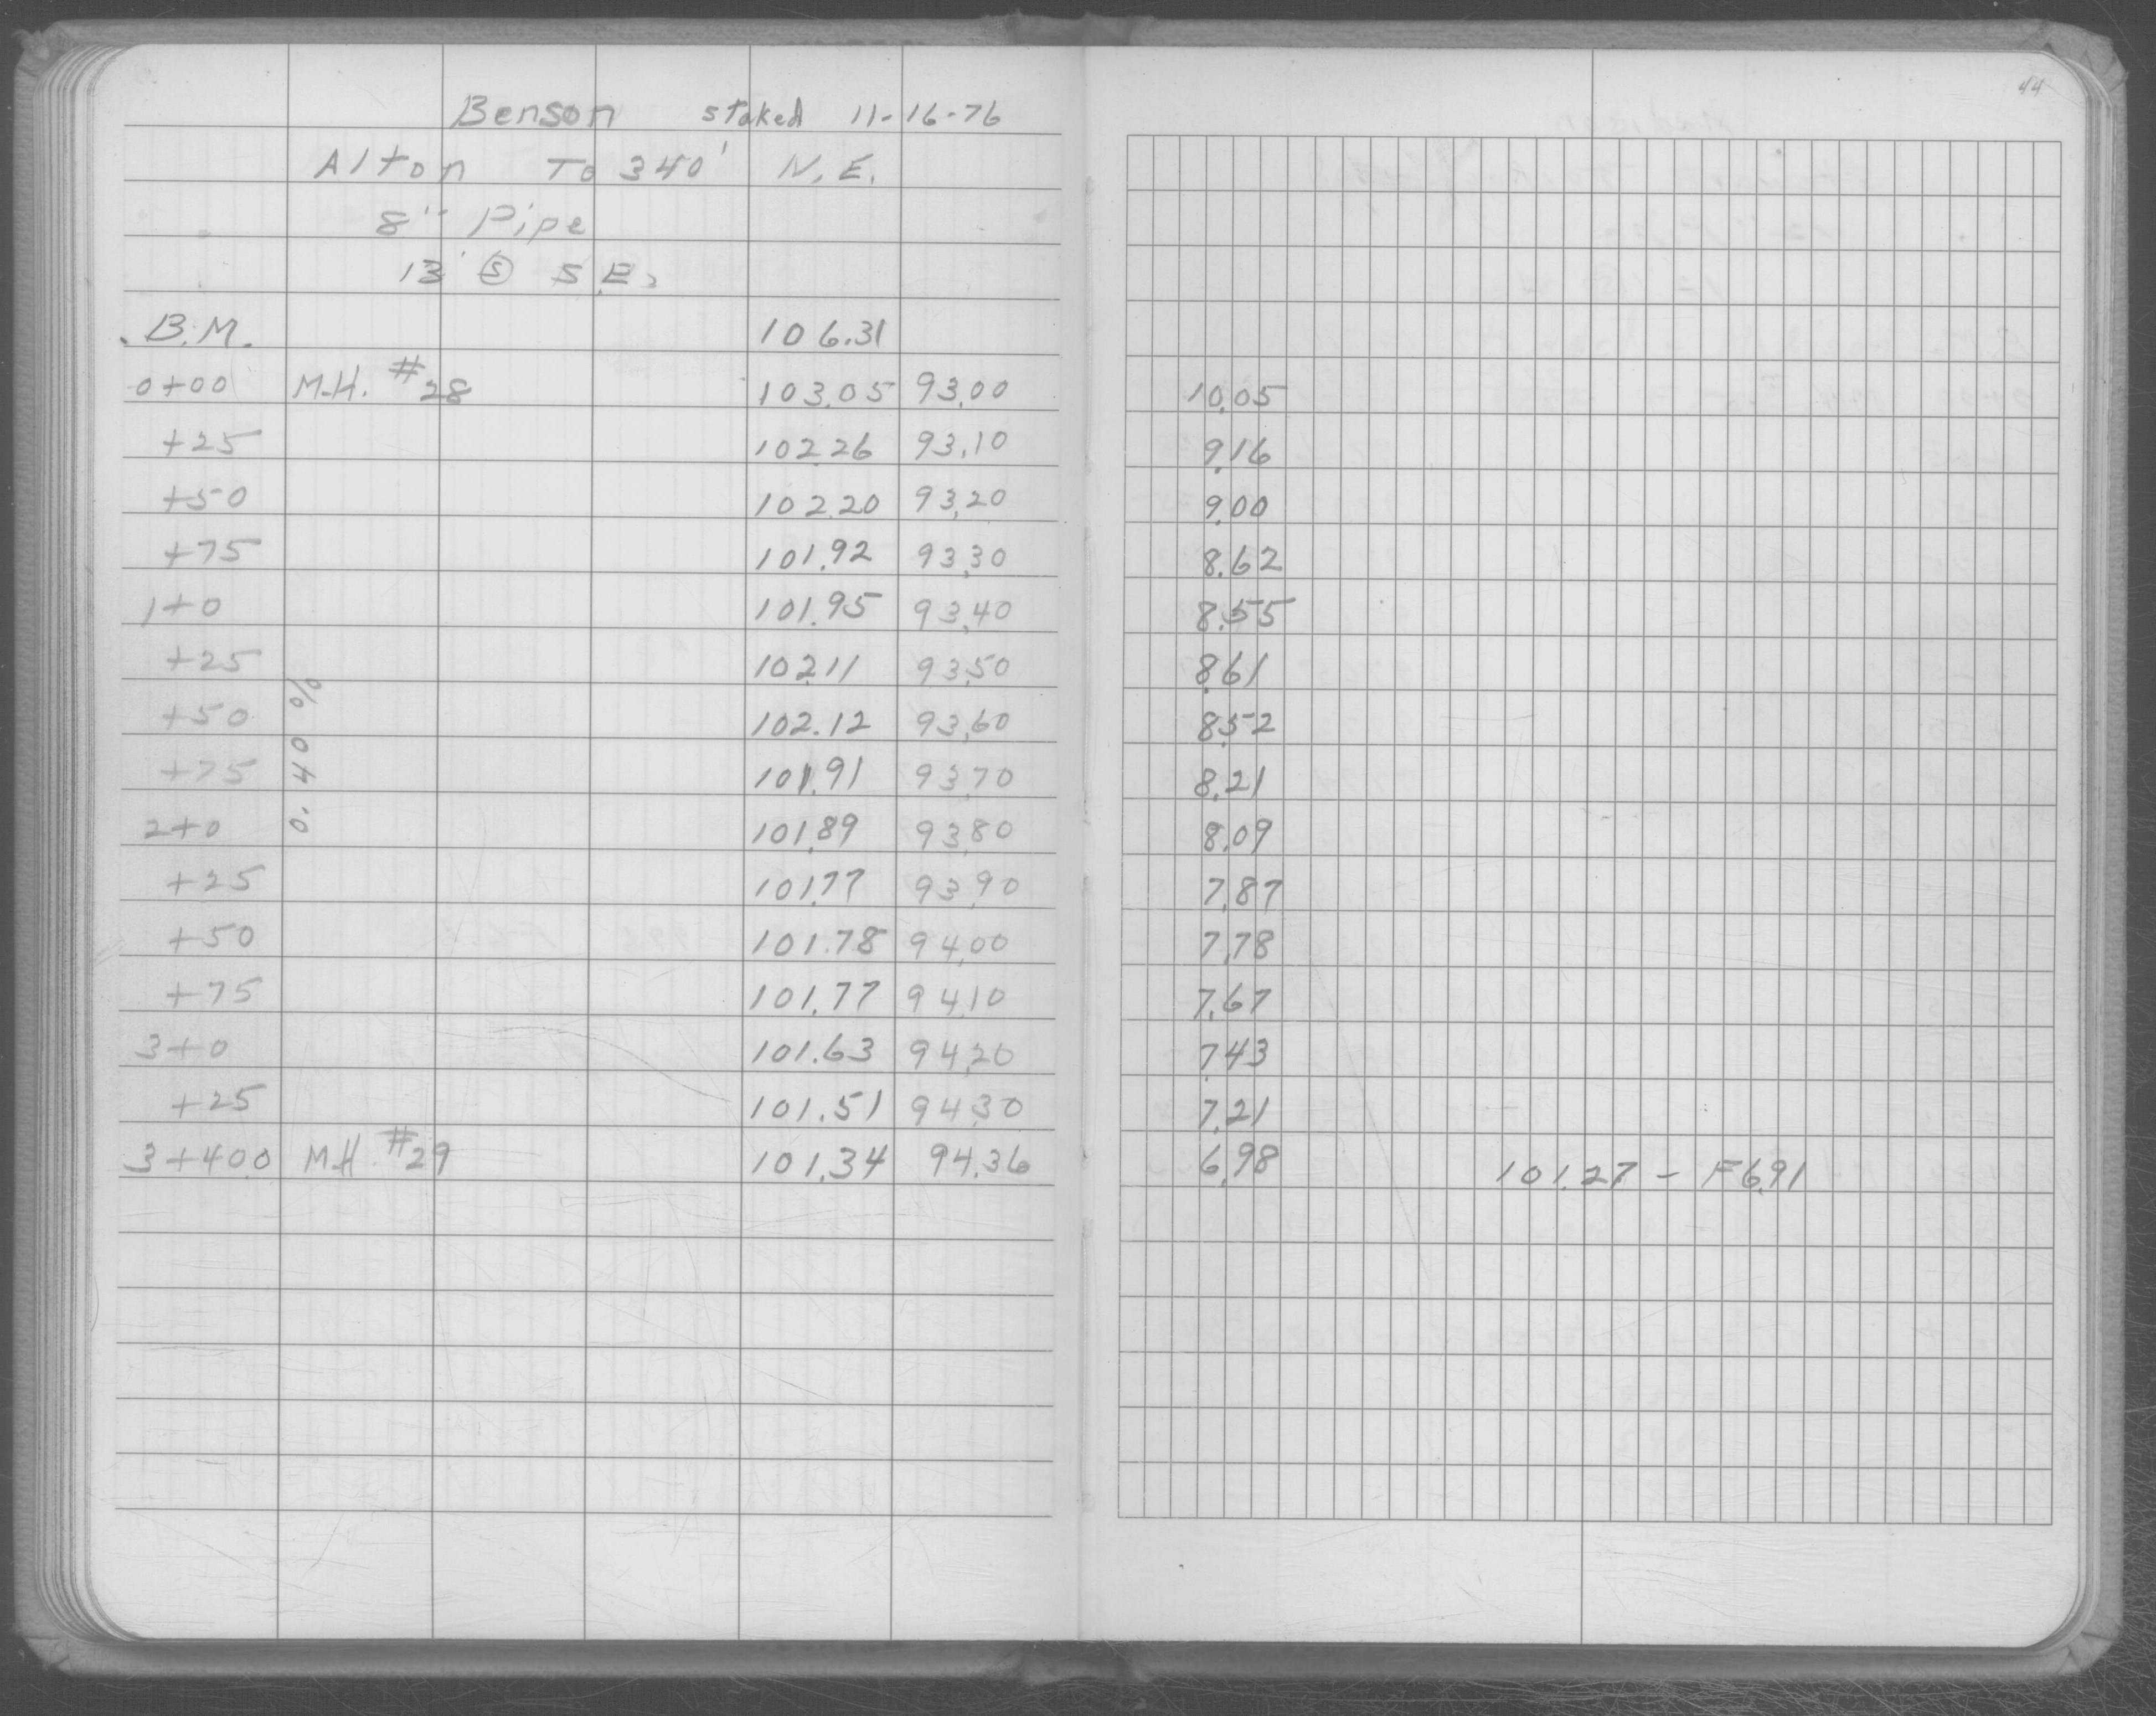 44
Benson staked 11-16-76
Alton To 340' N.E.
8" Pipe
13' Ⓢ S.E.
B.M. 106.31
0+00 M.H. #28 103.05 93.00 10.05
+25 102.26 93.10 9.16
+50 102.20 93.20 9.00
+75 101.92 93.30 8.62
1+0 101.95 93.40 8.55
+25 102.11 93.50 8.61
+50 102.12 93.60 8.52
+75 101.91 93.70 8.21
2+0 101.89 93.80 8.09
+25 101.77 93.90 7.87
+50 101.78 94.00 7.78
+75 101.77 94.10 7.67
3+0 101.63 94.20 7.43
+25 101.51 94.30 7.21
3+40.0 M.H. #29 101.34 94.36 6.98 101.27 - F6.91
0.40 %